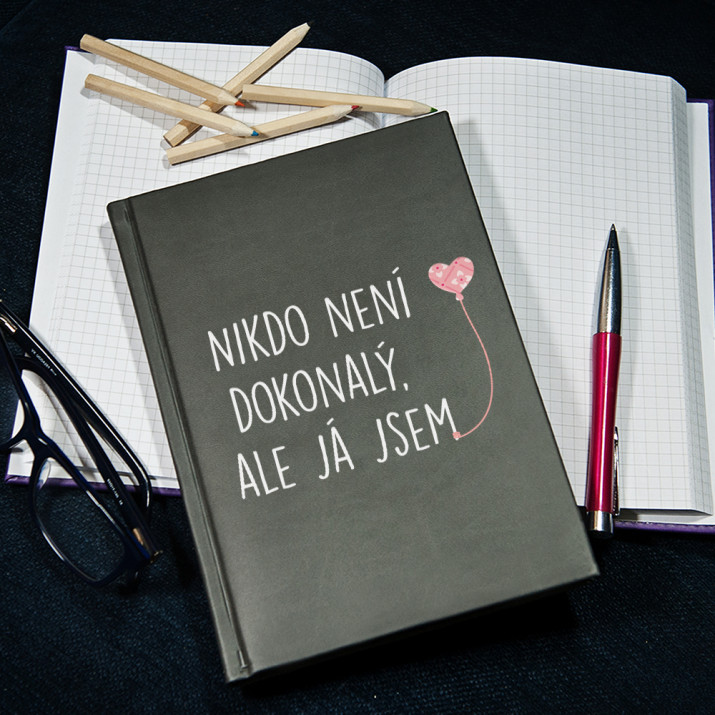 NIKDO NENÍ
DOKONALÝ,
ALE JÁ JSEM